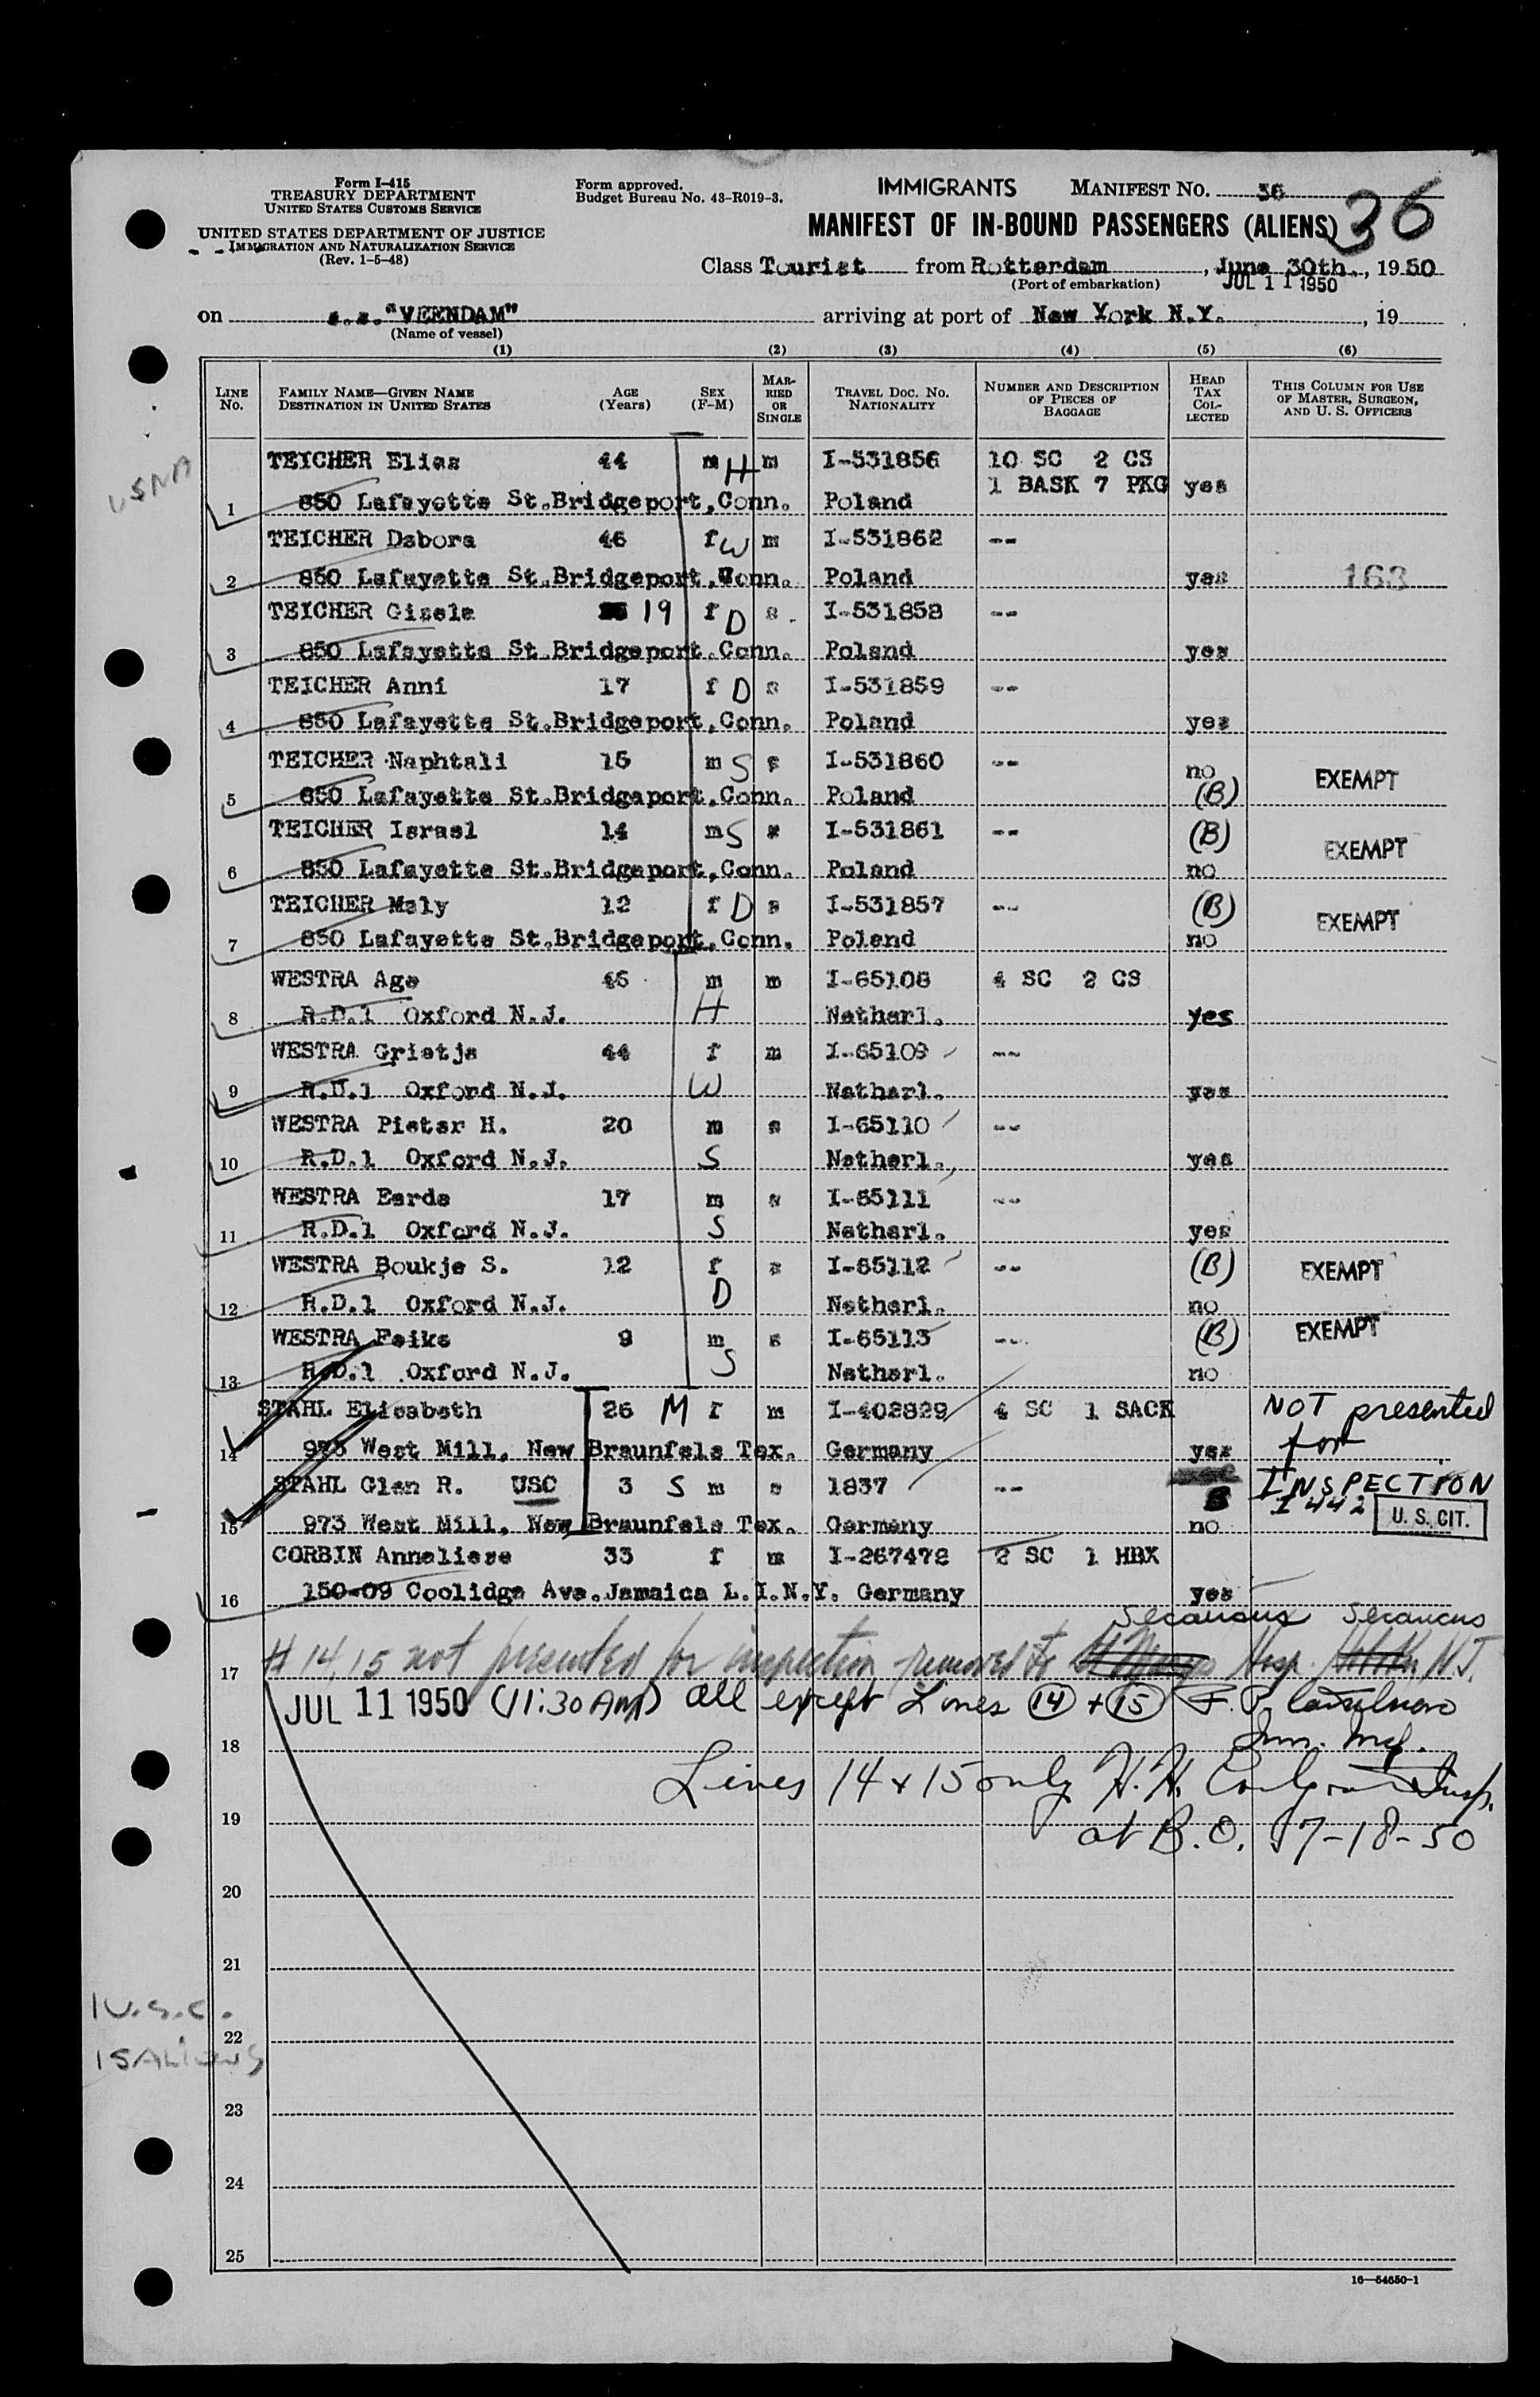 Form I-415
TREASURY DEPARTMENT
UNITED STATES CUSTOMS SERVICE
UNITED STATES DEPARTMENT OF JUSTICE
IMMIGRATION AND NATURALIZATION SERVICE
(Rev. 1-5-48)
Form approved.
Budget Bureau No. 43-R019-3.
IMMIGRANTS MANIFEST NO. 36
36
MANIFEST OF IN-BOUND PASSENGERS (ALIENS)
Class Tourist from Rotterdam, June 30th., 1950
(Port of embarkation) JUL 11 1950
on s.s."VEENDAM" arriving at port of New York N.Y., 19
(Name of vessel)
(1) (2) (3) (4) (5) (6)
LINE NO. FAMILY NAME—GIVEN NAME DESTINATION IN UNITED STATES AGE (Years) SEX (F-M) MARRIED OR SINGLE TRAVEL DOC. NO. NATIONALITY NUMBER AND DESCRIPTION OF PIECES OF BAGGAGE HEAD TAX COLLECTED THIS COLUMN FOR USE OF MASTER, SURGEON, AND U. S. OFFICERS
USNA
TEICHER Elias 44 m H m I-531856 10 SC 2 CS
1 BASK 7 PKG yes
1 850 Lafayette St.Bridgeport,Conn. Poland
TEICHER Debora 46 f W m I-531862 --
2 850 Lafayette St.Bridgeport,Conn. Poland yes 163
TEICHER Gisela 19 f D s I-531858 --
3 850 Lafayette St.Bridgeport.Conn. Poland yes
TEICHER Anni 17 f D s I-531859 --
4 850 Lafayette St.Bridgeport,Conn. Poland yes
TEICHER Naphtali 15 m S s I-531860 -- no EXEMPT
5 850 Lafayette St.Bridgeport,Conn. Poland (B)
TEICHER Israel 14 m S s I-531861 -- (B) EXEMPT
6 850 Lafayette St.Bridgeport,Conn. Poland no
TEICHER Maly 12 f D s I-531857 -- (B) EXEMPT
7 850 Lafayette St.Bridgeport,Conn. Poland no
WESTRA Age 45 m m I-65108 4 SC 2 CS
8 R.D.1 Oxford N.J. H Netherl. yes
WESTRA Grietje 44 f m I-65109 --
9 R.D.1 Oxford N.J. W Netherl. yes
WESTRA Pieter H. 20 m s I-65110 --
10 R.D.1 Oxford N.J. S Netherl. yes
WESTRA Eerde 17 m s I-65111 --
11 R.D.1 Oxford N.J. S Netherl. yes
WESTRA Boukje S. 12 f s I-65112 -- (B) EXEMPT
12 R.D.1 Oxford N.J. D Netherl. no
WESTRA Feike 9 m s I-65113 -- (B) EXEMPT
13 R.D.1 Oxford N.J. S Netherl. no
STAHL Elisabeth 26 M f m I-402829 4 SC 1 SACK NOT presented
14 973 West Mill, New Braunfels Tex. Germany yes for
STAHL Glen R. USC 3 S m s 1837 -- INSPECTION
I 442 U. S. CIT.
15 973 West Mill, New Braunfels Tex. Germany no
CORBIN Anneliese 33 f m I-267472 2 SC 1 HBX
16 150-09 Coolidge Ave.Jamaica L.I.N.Y. Germany yes
Secaucus Secaucus
17 # 14,15 not presented for inspection removed to Hosp. N.J.
JUL 11 1950 (11:30 AM) all except Lines 14 + 15 F. P.
18 Imm. Insp.
Lines 14 + 15 only H. H. Insp.
19 at B.O. 7-18-50
20
21
1 U.S.C.
22
15 ALIENS
23
24
25
16—54650-1